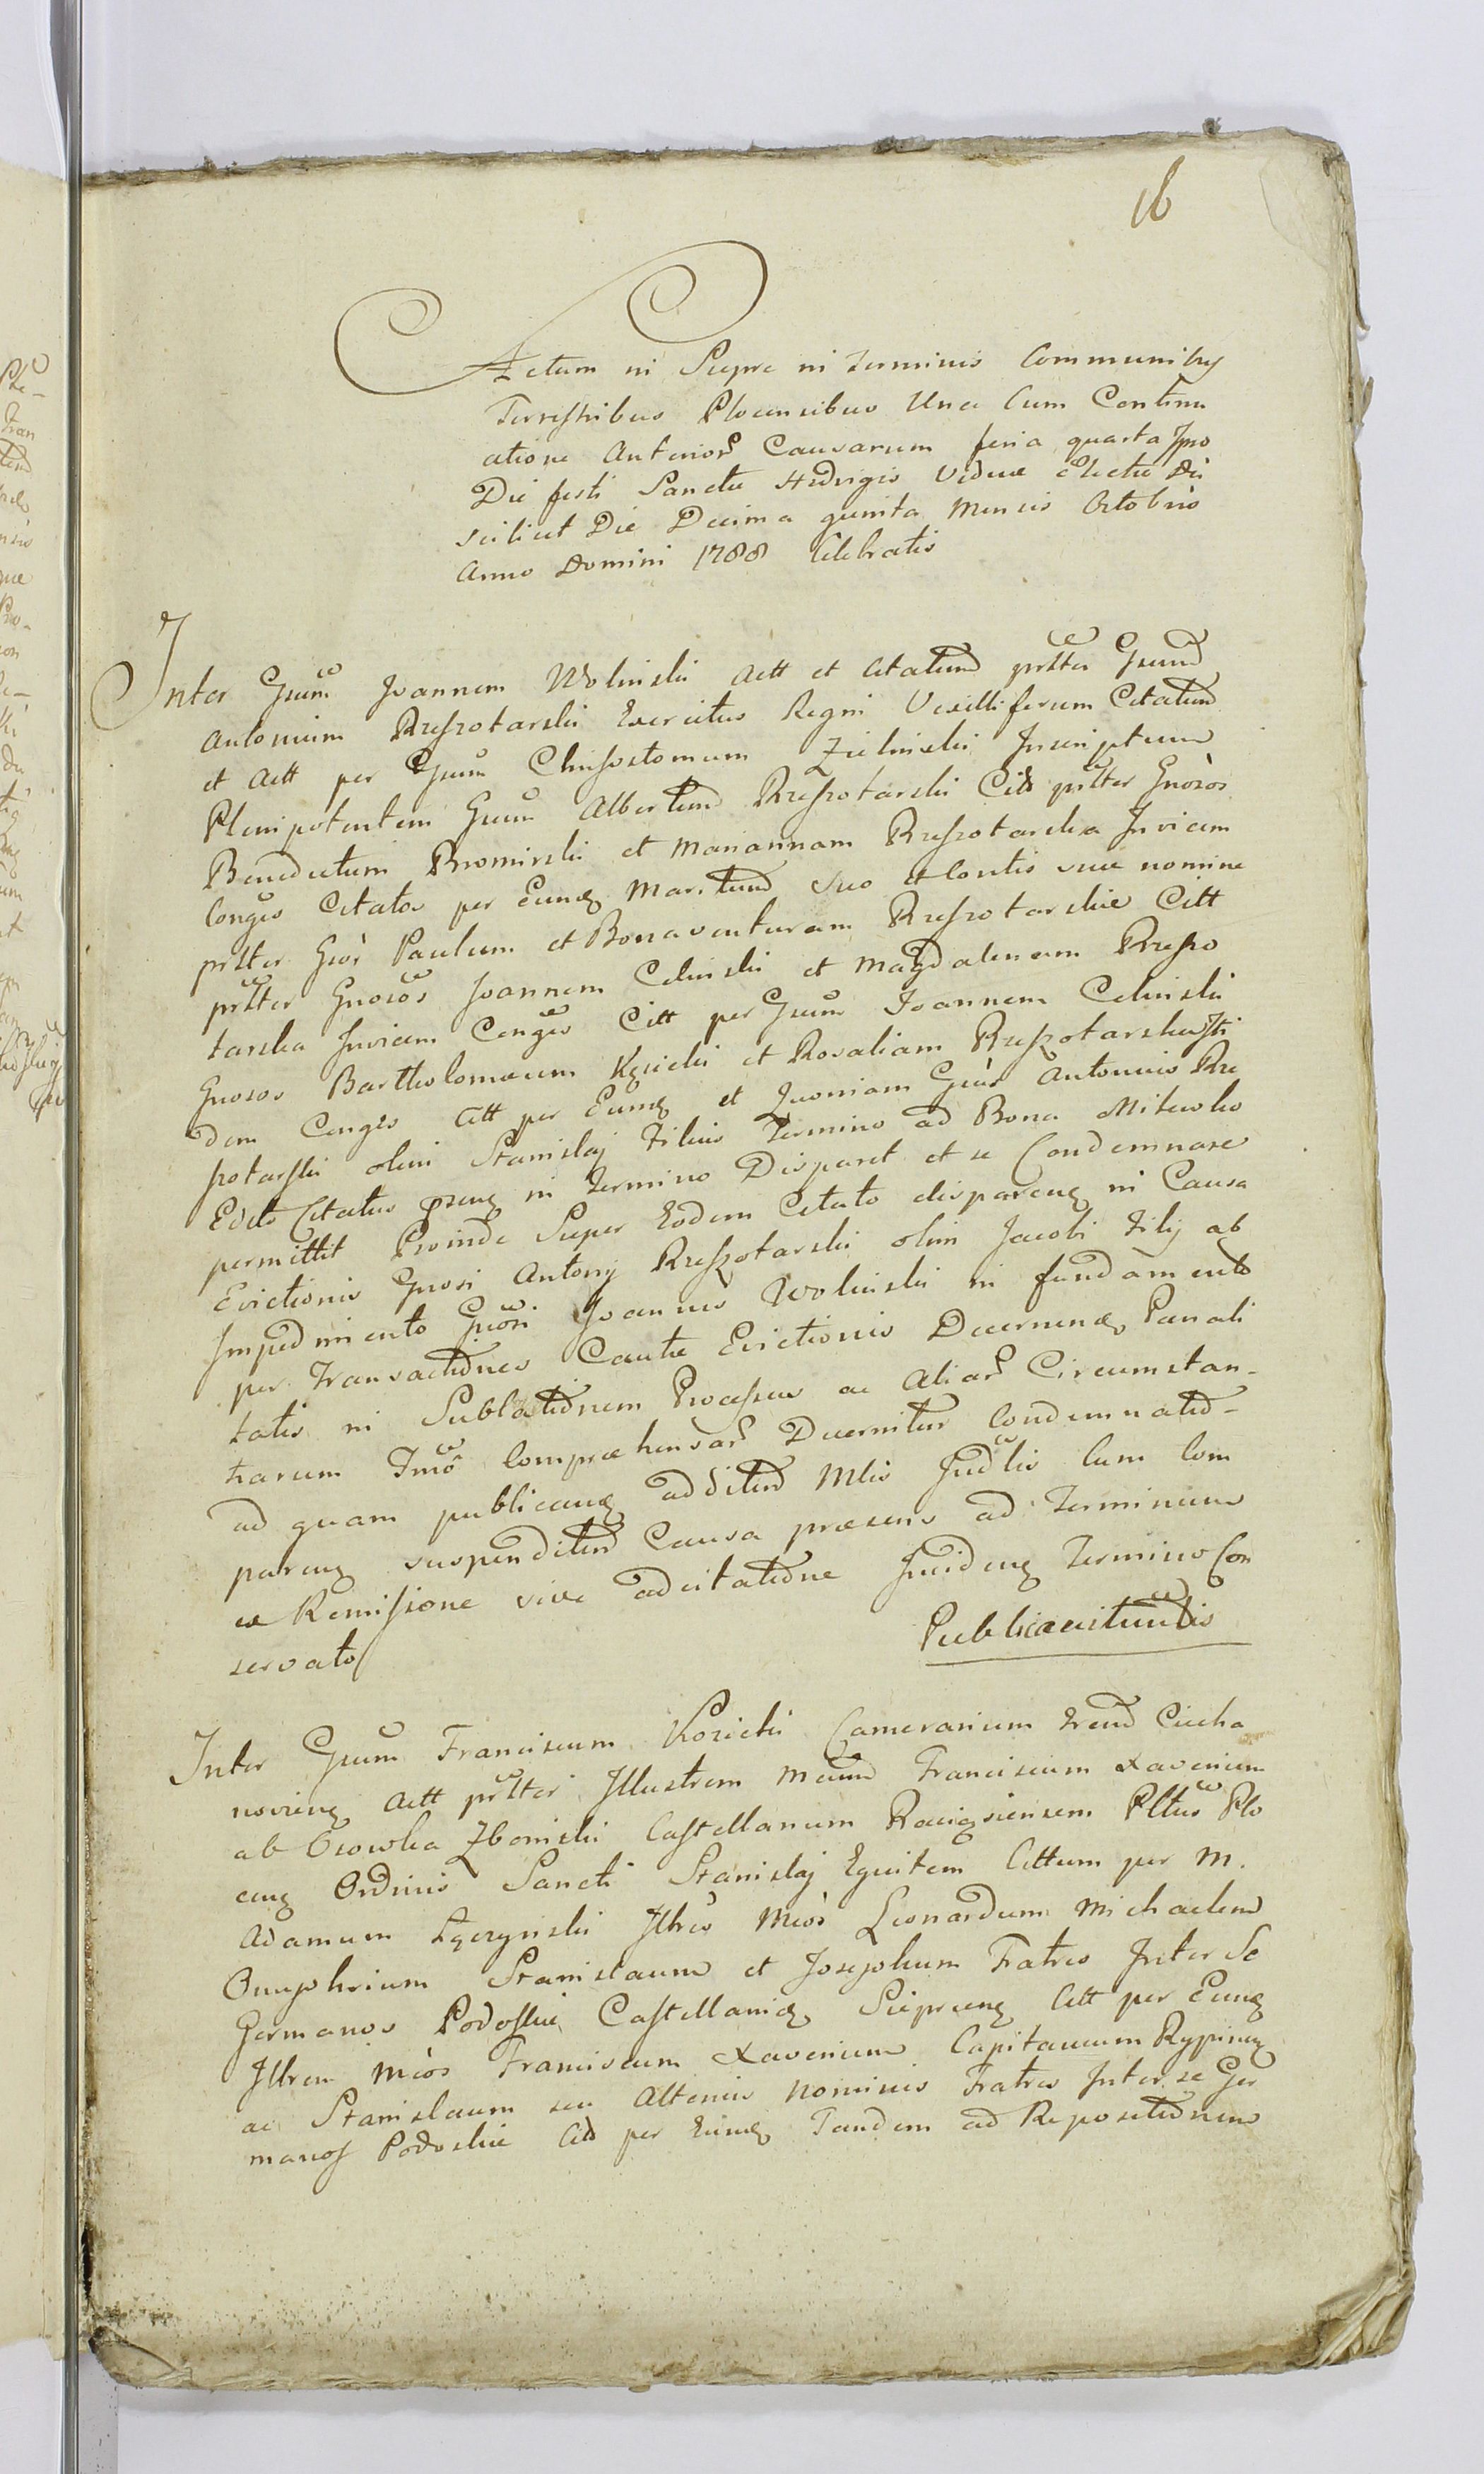 16
Actum in Sieprc in Terminis Communibus
Terrestribus Plocensibus Una Cum Continu
atione Anterior Causarum feria quarta Ipso
Die festi Sanctae Hedvigis Viduae Electae Dei
scilicet Die Decima quinta Mensis Octobris
Anno Domini 1788 Celebratis
Inter Gsum Joannem Wolinski Actt et Citatum pritter Gsum
Antonium Rzeszotarski Exercitus Regni Vexilliferum Citatum
et Actt per Gsum Chrisostomum Zielinski Inscriptum
Plenipotentem Gsum Albertum Rzeszotarski Citt pritter Gnosos
Benedictum Bromirski et Mariannam Rzeszotarska Invicem
Conges Citatos per Eundq Maritum suo et Contis suae nomine
pritter Gsos Paulum et Bonaventuram Rzeszotarskie Citt
pritter Gnosos Joannem Celinski et Magdalenam Rzeszo
tarska Invicem Conges Citt per Gsum Joannem Celinski
Gnosos Bartholomaeum Kęsicki et Rosaliam Rzeszotarska Iti
dem Conges Citt per Eundq et Quoniam Gsus Antonius Rze
szotarski olim Stanislaj Filius Termino ad Bona Milewko
Edito Citatus in Termino Disparet et se Condemnare
permittit Proinde Super Eodem Citato disparenq in Causa
Evictionis Gnosi Antonij Rzeszotarski olim Jacobi Filij ab
Impedimento Gnosi Joannis Wolinski in fundamento
per Transactiones Cautae Evictionis Decernend Paenali
tatis in Sublationem Processus ac Aliar Circumstan-
tiarum Imo Compraehensar Decernitur Condemnatio-
ad quam publicanq additur Mlis Judlis Cum Com
parenq suspenditur Causa praesens ad Terminum
ex Remissione sive adcitatione Incidenq Termino Con
servato
Publicavitursis
Inter Gsum Franciscum Kozicki Camerarium Trend Ciecha
noviens Actt pritter Illustrem Mcum Franciscum Xaverium
ab Osowka Zboinski Castellanum Raciąsiensem Pltus Plo
cens Ordinis Sancti Stanislaj Equitem Cittum per M.
Adamum Łączynski Illres Mcos Leonardum Michaelem
Onuphrium Stanislaum et Josephum Fratres Inter Se
Germanos Podoskie Castellanid Sieprcenq Citt per Eundq
Illrem Mcos Franciscum Xaverium Capitaneum Rypinenq
ac Stanislaum seu Alterius Nominis Fratres Inter se Ger
manos Podoskie Citt per Eundq Tandem ad Repositionem